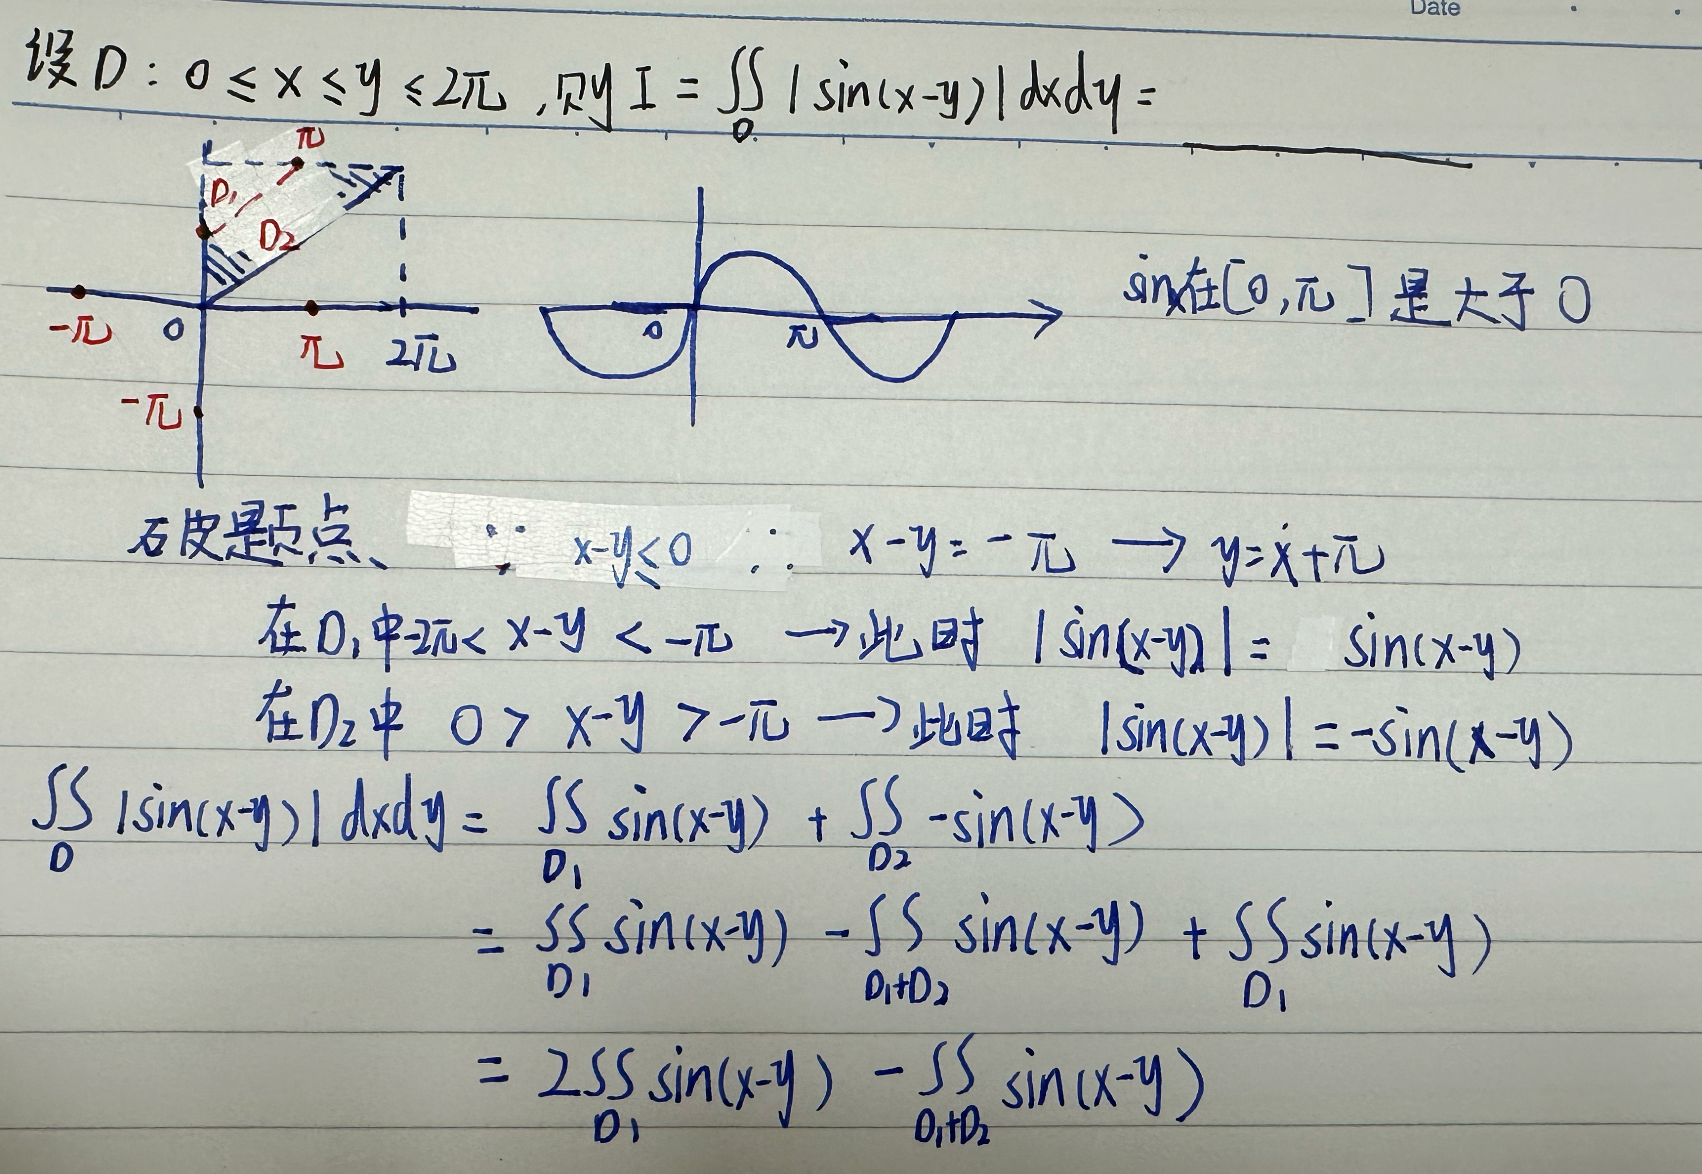 Date
设D：0≤x≤y≤2π，则 I = ∬_D |sin(x-y)|dxdy = ____
π
D₁
D₂
-π 0 π 2π
-π
0 π
sinx在[0,π]是大于0
破题点、 ∵ x-y≤0 ∴ x-y=-π → y=x+π
在D₁中-2π< x-y < -π → 此时 |sin(x-y)| = sin(x-y)
在D₂中 0 > x-y > -π → 此时 |sin(x-y)| = -sin(x-y)
∬_D |sin(x-y)| dxdy = ∬_D₁ sin(x-y) + ∬_D₂ -sin(x-y)
= ∬_D₁ sin(x-y) - ∬_D₁+D₂ sin(x-y) + ∬_D₁ sin(x-y)
= 2∬_D₁ sin(x-y) - ∬_D₁+D₂ sin(x-y)